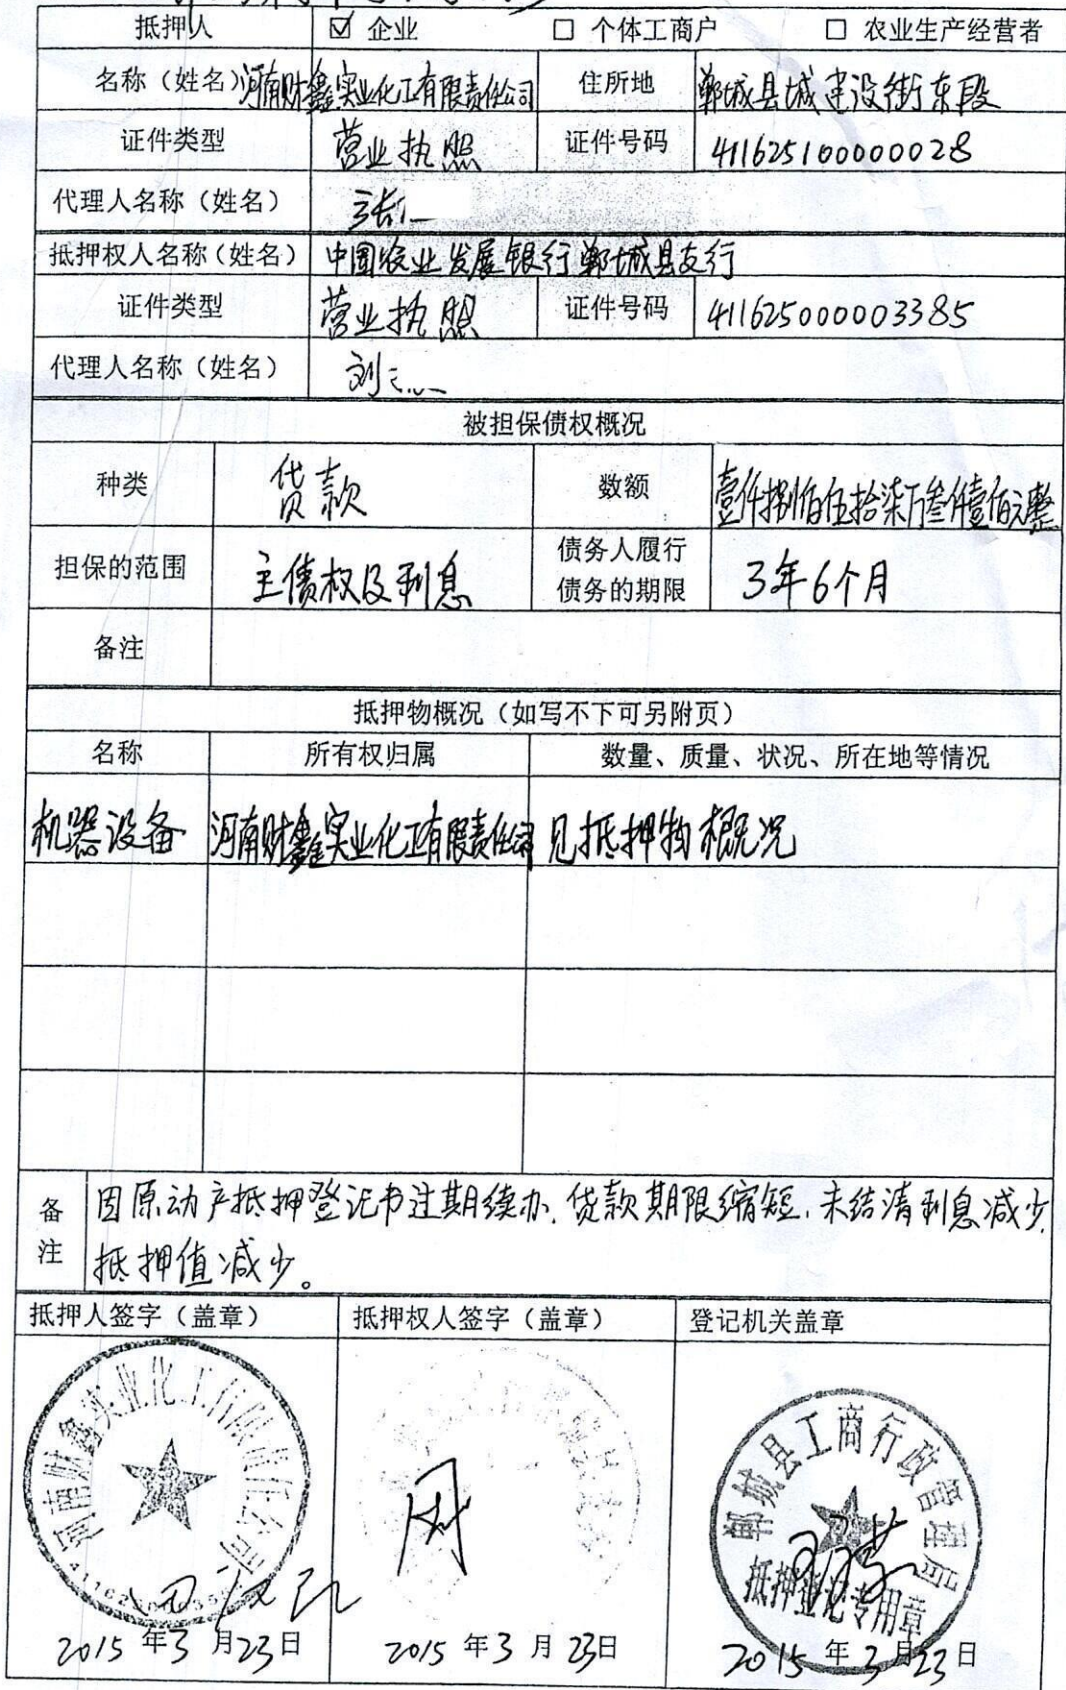 抵押人 ☑ 企业 □ 个体工商户 □ 农业生产经营者
名称（姓名） 河南财鑫实业化工有限责任公司 住所地 郸城县城建设街东段
证件类型 营业执照 证件号码 411625100000028
代理人名称（姓名）
抵押权人名称（姓名） 中国农业发展银行郸城县支行
证件类型 营业执照 证件号码 411625000003385
代理人名称（姓名） 刘
被担保债权概况
种类 贷款 数额 壹仟捌佰伍拾柒万叁仟壹佰元整
担保的范围 主债权及利息 债务人履行
债务的期限 3年6个月
备注
抵押物概况（如写不下可另附页）
名称 所有权归属 数量、质量、状况、所在地等情况
机器设备 河南财鑫实业化工有限责任公司 见抵押物概况
备注 因原动产抵押登记书过期续办,贷款期限缩短,未结清利息减少,
抵押值减少。
抵押人签字（盖章） 抵押权人签字（盖章） 登记机关盖章
河南财鑫实业化工有限责任公司
郸城县工商行政管理局
抵押登记专用章
2015年3月23日 2015年3月23日 2015年3月23日